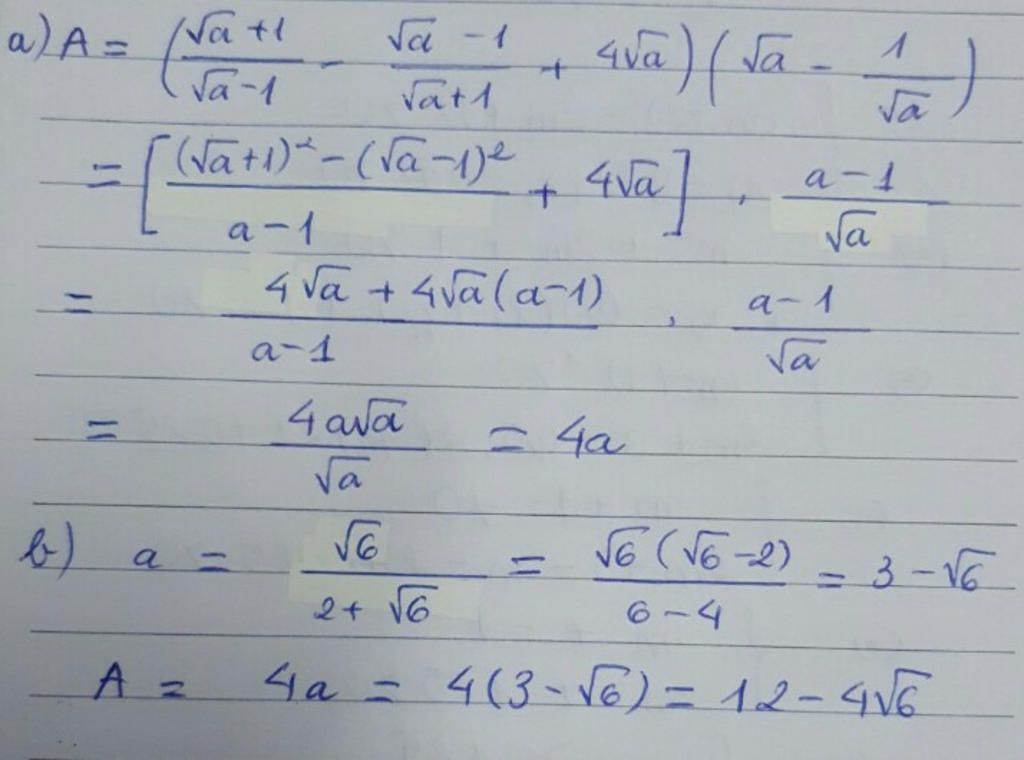 a) A = ( (√a + 1)/(√a - 1) - (√a - 1)/(√a + 1) + 4√a ) ( √a - 1/√a )
= [ ((√a + 1)² - (√a - 1)²)/(a - 1) + 4√a ] . (a - 1)/√a
= (4√a + 4√a(a - 1))/(a - 1) . (a - 1)/√a
= 4a√a/√a = 4a
b) a = √6/(2 + √6) = √6(√6 - 2)/(6 - 4) = 3 - √6
A = 4a = 4(3 - √6) = 12 - 4√6